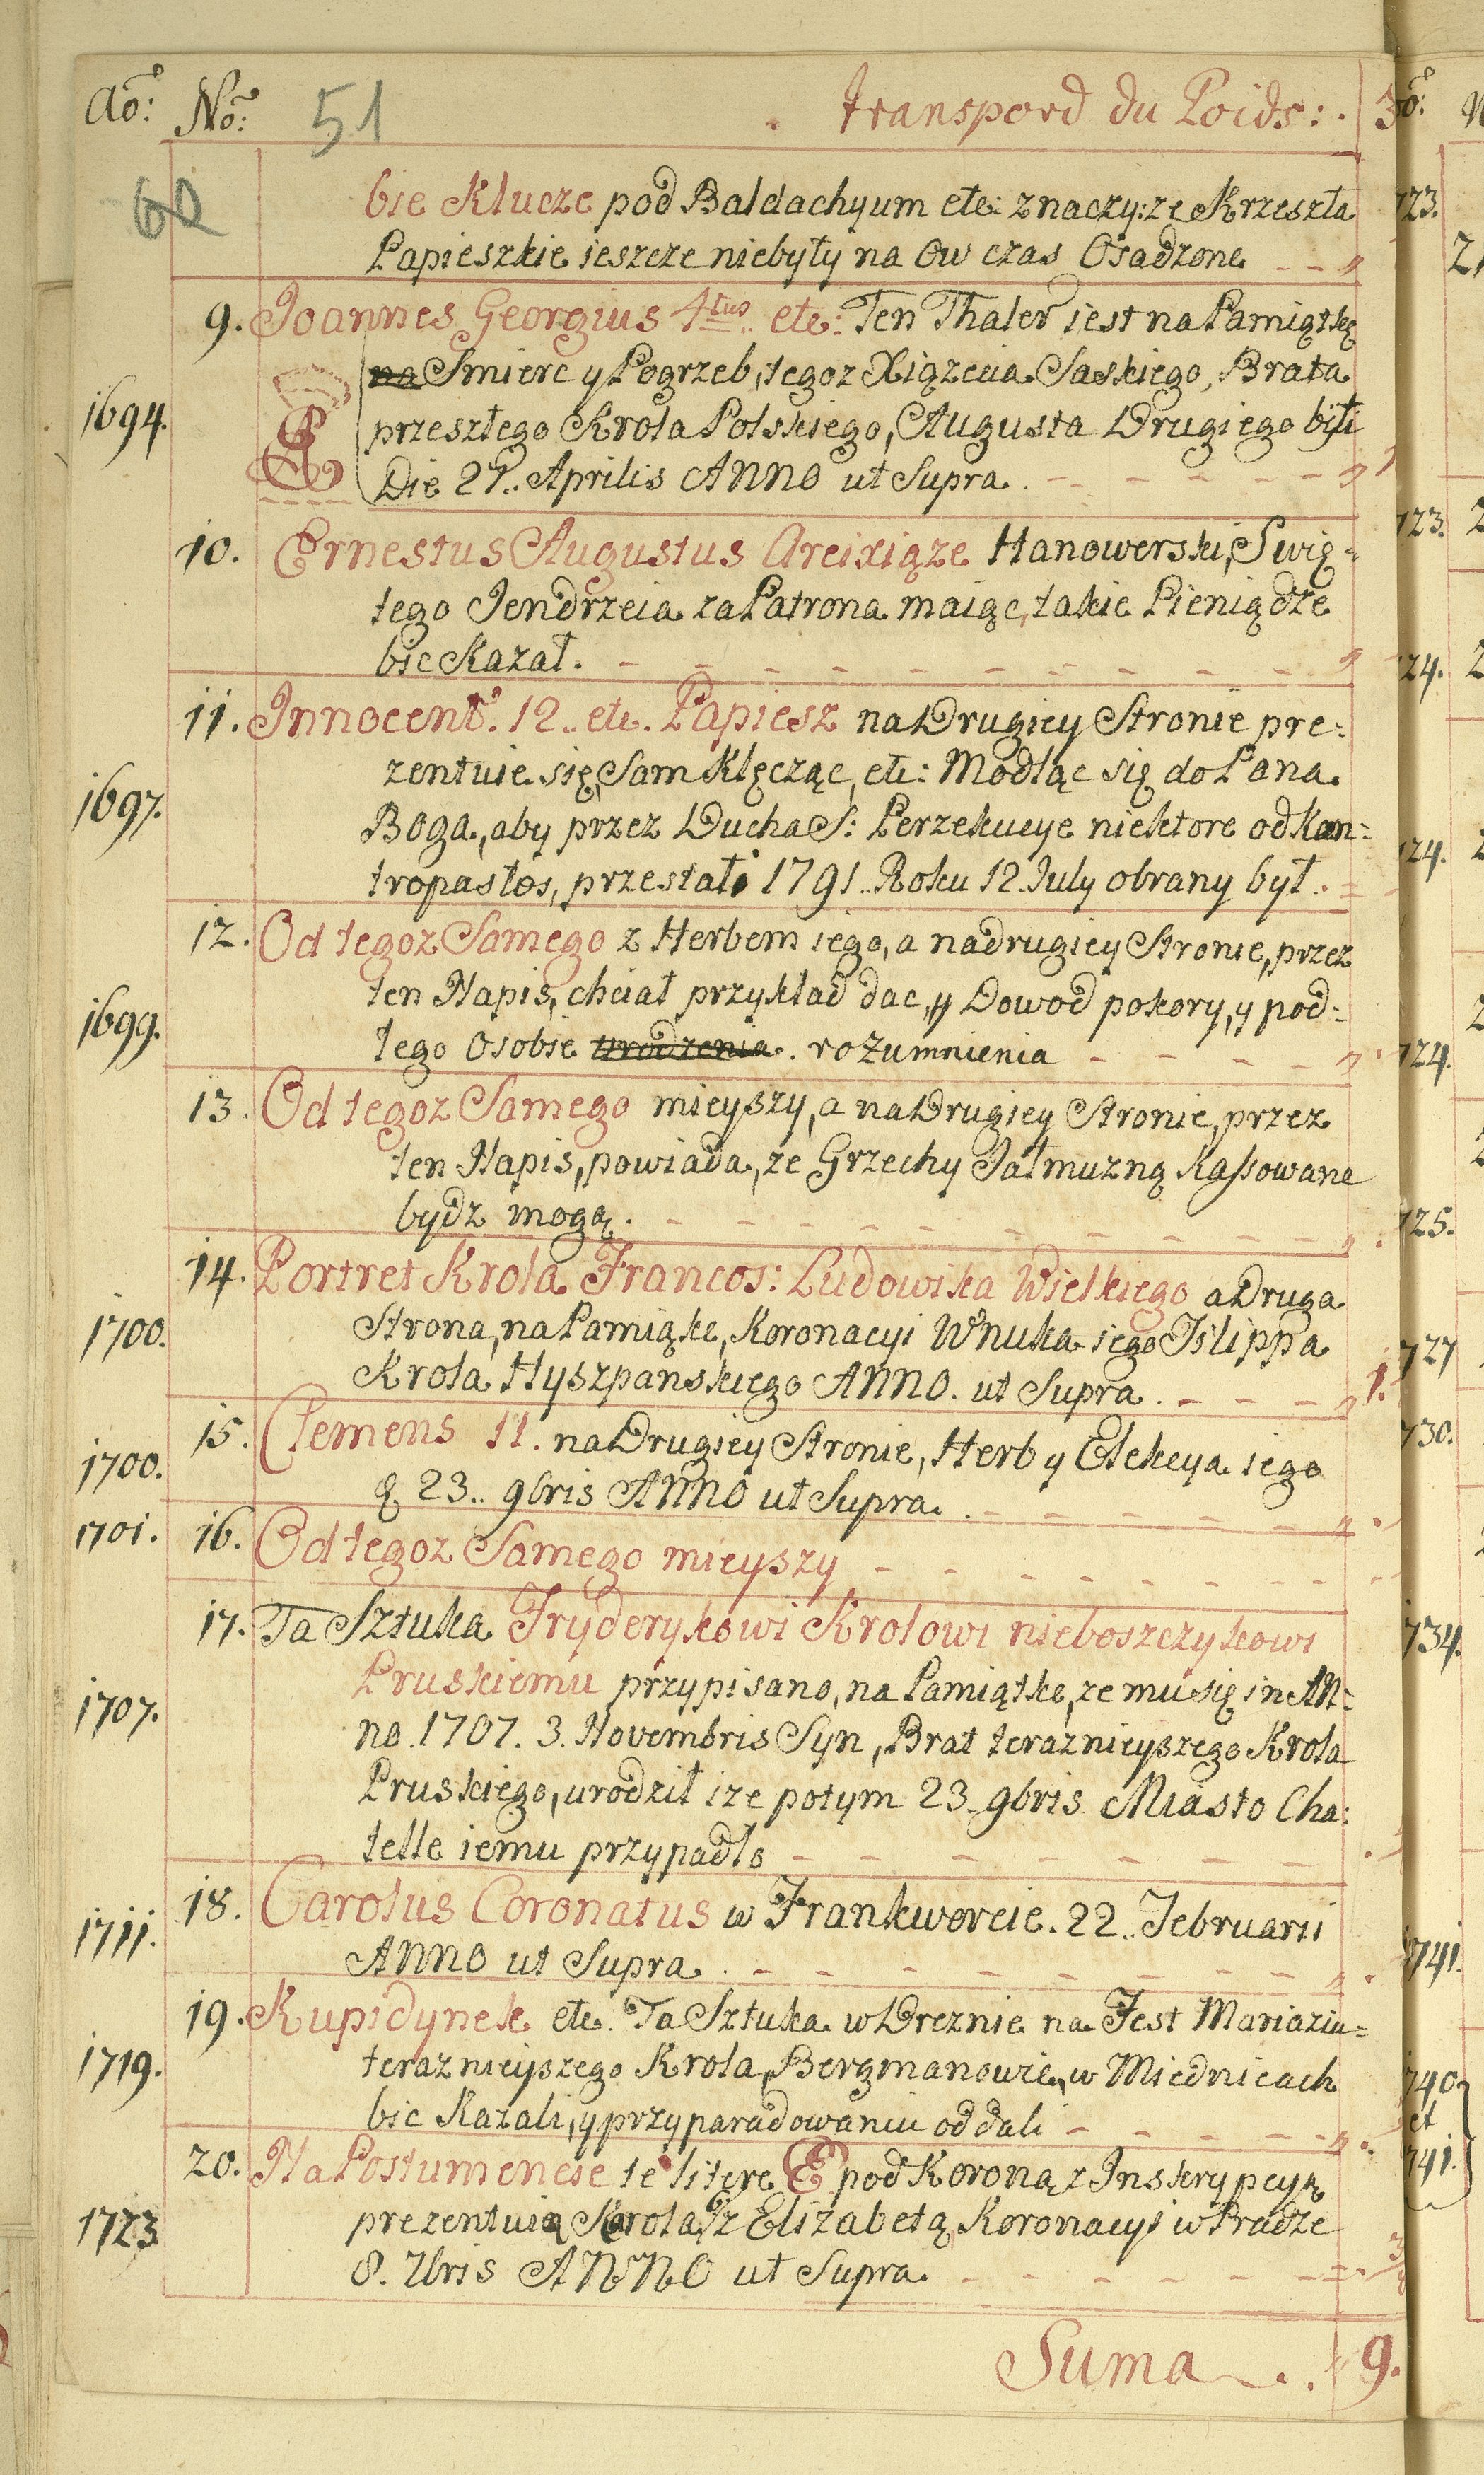 Ao: No: 51 transpord du Poids: 3
60
bie Klucze pod Baldachyum etc: znaczy: ze Krzeszła
Papieszkie ieszcze niebyły na Ow czas Osadzone
9. Joannes Georgius 4tus etc: Ten Thaler iest na Pamiątkę
na Smierc y Pogrzeb, tegoz Xiązecia Saskiego, Brata
1694. przeszłego Krola Polskiego, Augusta Drugiego byłi
Die 27. Aprilis ANNO ut Supra.
10. Ernestus Augustus Arcixiąze Hanowerski, Swię=
tego Jendrzeia za Patrona maiąc, takie Pieniądze
bic Kazał.
11. Innocent. 12.. etc. Papiesz na Drugiey Stronie pre=
zentuie się, Sam Klęcząc, etc: Modląc się do Pana
1697. Boga, aby przez Ducha S: Perzekucye niektore od Kon=
tropastos, przestałi 1791.. Roku 12. July obrany był.
12. Od tegoz Samego z Herbem iego, a nadrugiey Stronie, przez
ten Napis, chciał przykład dac, y Dowod pokory, y pod=
1699. tego Osobie urodzenia. rozumnienia
13. Od tegoz Samego mieyszy, a na Drugiey Stronie, przez
ten Napis, powiada, ze Grzechy Jałmuzną Kassowane
bydz mogą.
14. Portret Krola Francos: Ludowika Wielkiego a Druga
1700. Strona, na Pamiąke, Koronacyi Wnuka iego Filippa
Krola Hyszpanskiego ANNO. ut Supra. 1.
15. Clemens 11. na Drugiey Stronie, Herb y Elekcya iego
1700. 23.. 9bris ANNO ut Supra.
1701. 16. Od tegoz Samego mieyszy
17. Ta Sztuka Fryderykowi Krolowi nieboszczykowi
Pruskiemu przypisano, na Pamiątke, ze mu się in AN=
1707. no. 1707. 3. Novembris Syn, Brat teraznieyszego Krola
Pruskiego, urodził i ze potym 23. 9bris Miasto Cha:
telle iemu przypadło
18. Carolus Coronatus w Frankworcie. 22.. Februarii
1711. ANNO ut Supra.
19. Kupidynek etc. Ta Sztuka w Dreznie na Fest Mariaziu=
1719. teraznieyszego Krola, Bergmanowie, w Miednicach
bic Kazali, y przy paradowaniu oddali
20. Na Postumencie te litere E pod Koroną z Inskrypcyą
1723 prezentuią Krola, z Elizabetą Koronacyi w Pradze
8. 7bris ANNO ut Supra.
Suma 9.
723.
723.
724.
724.
724.
725.
727
730.
734.
1741.
740
et
741.